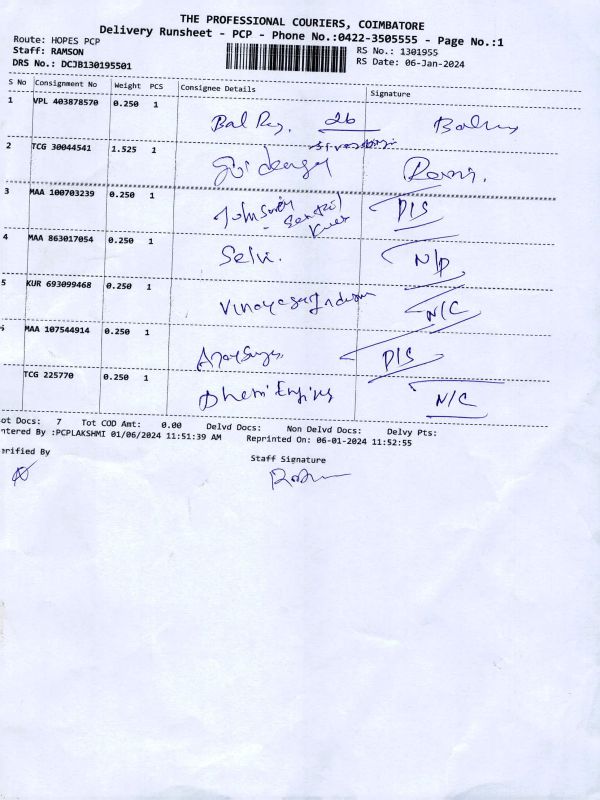 THE PROFESSIONAL COURIERS, COIMBATORE
Delivery Runsheet - PCP - Phone No.:0422-3505555 - Page No.:1
Route: HOPES PCP
RS No.: 1301955
Staff: RAMSON
RS Date: 06-Jan-2024
DRS No.: DCJB130195501
S No Consignment No Weight PCS Consignee Details Signature
1 VPL 403878570 0.250 1
Bal Raj.
2 TCG 30044541 1.525 1
3 MAA 100703239 0.250 1
Johnson D/S
4 MAA 863017054 0.250 1
Selvi. N/D
5 KUR 693099468 0.250 1
N/C
MAA 107544914 0.250 1
D/S
TCG 225770 0.250 1
N/C
ot Docs: 7 Tot COD Amt: 0.00 Delvd Docs: Non Delvd Docs: Delvy Pts:
ntered By :PCPLAKSHMI 01/06/2024 11:51:39 AM Reprinted On: 06-01-2024 11:52:55
erified By
Staff Signature